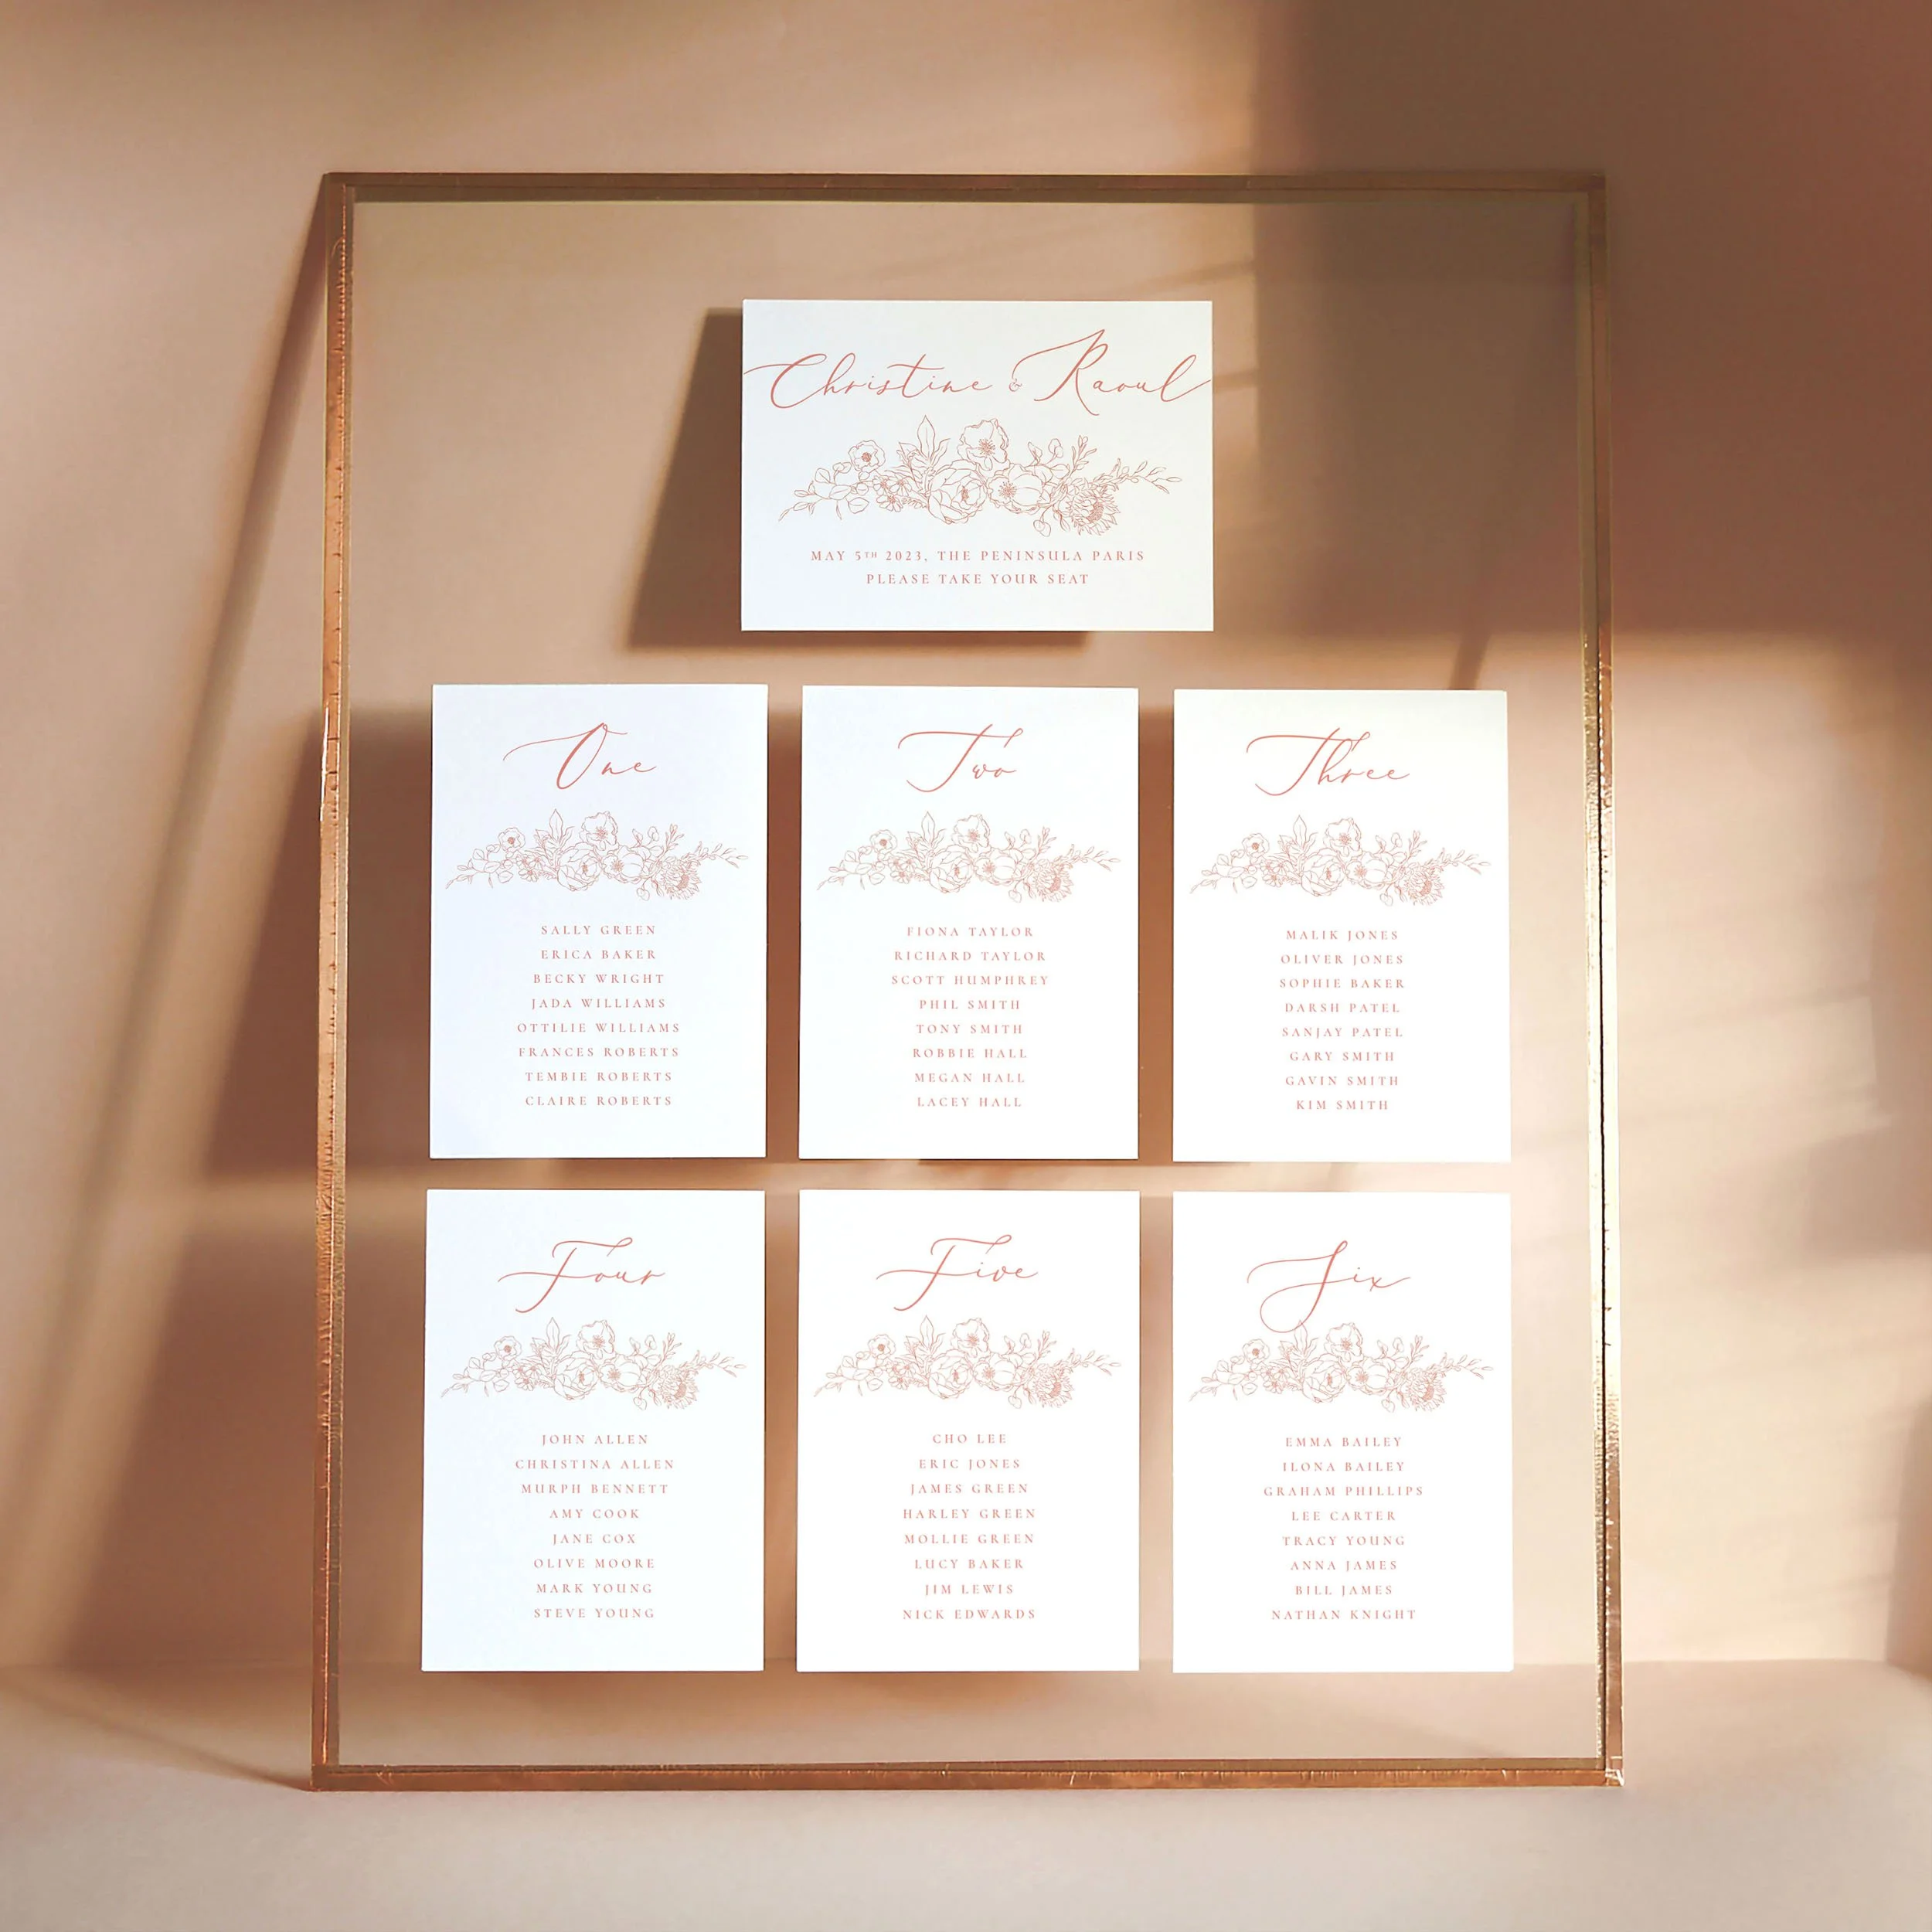 Christine & Raoul
MAY 5TH 2023, THE PENINSULA PARIS
PLEASE TAKE YOUR SEAT
One
SALLY GREEN
ERICA BAKER
BECKY WRIGHT
JADA WILLIAMS
OTTILIE WILLIAMS
FRANCES ROBERTS
TEMBIE ROBERTS
CLAIRE ROBERTS
Two
FIONA TAYLOR
RICHARD TAYLOR
SCOTT HUMPHREY
PHIL SMITH
TONY SMITH
ROBBIE HALL
MEGAN HALL
LACEY HALL
Three
MALIK JONES
OLIVER JONES
SOPHIE BAKER
DARSH PATEL
SANJAY PATEL
GARY SMITH
GAVIN SMITH
KIM SMITH
Four
JOHN ALLEN
CHRISTINA ALLEN
MURPH BENNETT
AMY COOK
JANE COX
OLIVE MOORE
MARK YOUNG
STEVE YOUNG
Five
CHO LEE
ERIC JONES
JAMES GREEN
HARLEY GREEN
MOLLIE GREEN
LUCY BAKER
JIM LEWIS
NICK EDWARDS
Six
EMMA BAILEY
ILONA BAILEY
GRAHAM PHILLIPS
LEE CARTER
TRACY YOUNG
ANNA JAMES
BILL JAMES
NATHAN KNIGHT